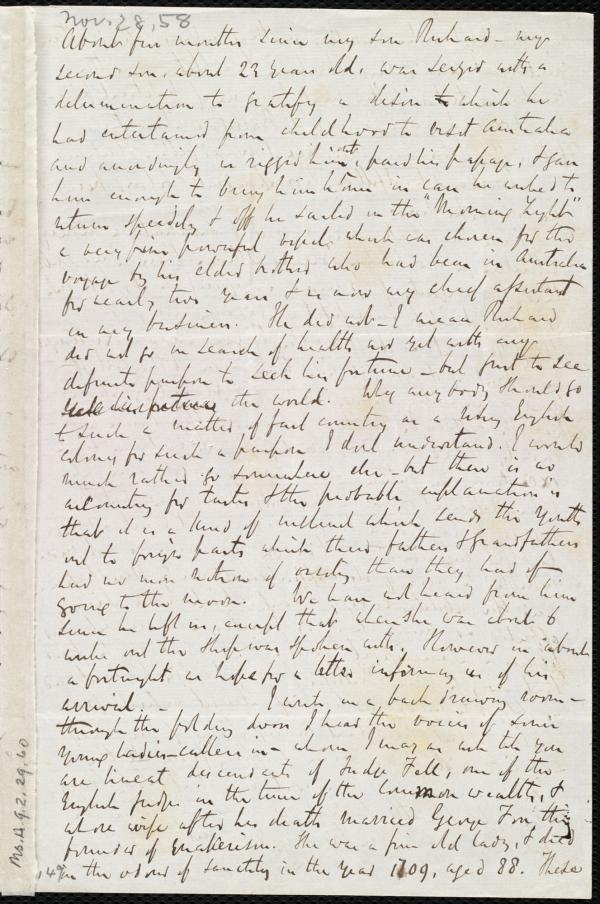 Nov. 28, 58
About five months since my son Richard - my
second son, about 23 years old, was seized with a
determination to gratify a desire which he
had entertained from childhood to visit Australia
and accordingly we rigged him out, paid his passage, & gave
him enough to bring him home in case he wished to
return speedily & off he sailed in the "Morning Light"
a very fine powerful vessel which was chosen for the
voyage by his elder brother who had been in Australia
for nearly two years & is now my chief assistant
in my business. He did not - I mean Richard
did not go in search of health nor yet with any
definite purpose to seek his fortune - but just to see
the world. Why anybody should go
to such a matter of fact country as a new English
colony for such a purpose I don't understand. I would
much rather go somewhere else - but there is no
accounting for tastes & the probable explanation is
that it is a kind of instinct which sends the youths
out to foreign parts which their fathers & grandfathers
had no more notion of visiting than they had of
going to the moon. We have not heard from him
since he left us, except that when she was about 6
weeks out the ship was spoken with. However in about
a fortnight we hope for a letter informing us of his
arrival. - I write in a back drawing room -
through the folding doors I hear the voices of some
young ladies - callers in - whom I may as well tell you
are lineal descendants of Judge Fell, one of the
English judges in the time of the Commonwealth, &
whose wife after his death married George Fox the
founder of Quakerism. She was a fine old lady, & died
in the odour of sanctity in the year 1709, aged 88. These
Ms.A.9.2.29.60